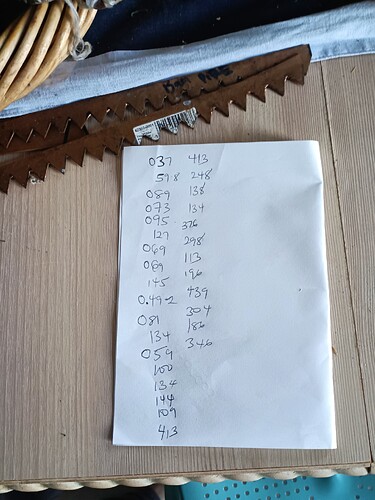 037 413
59.8 248
089 138
073 134
095 376
127 298
069 113
089 196
145 439
0.492 304
081 186
134 346
059
100
134
144
109
413